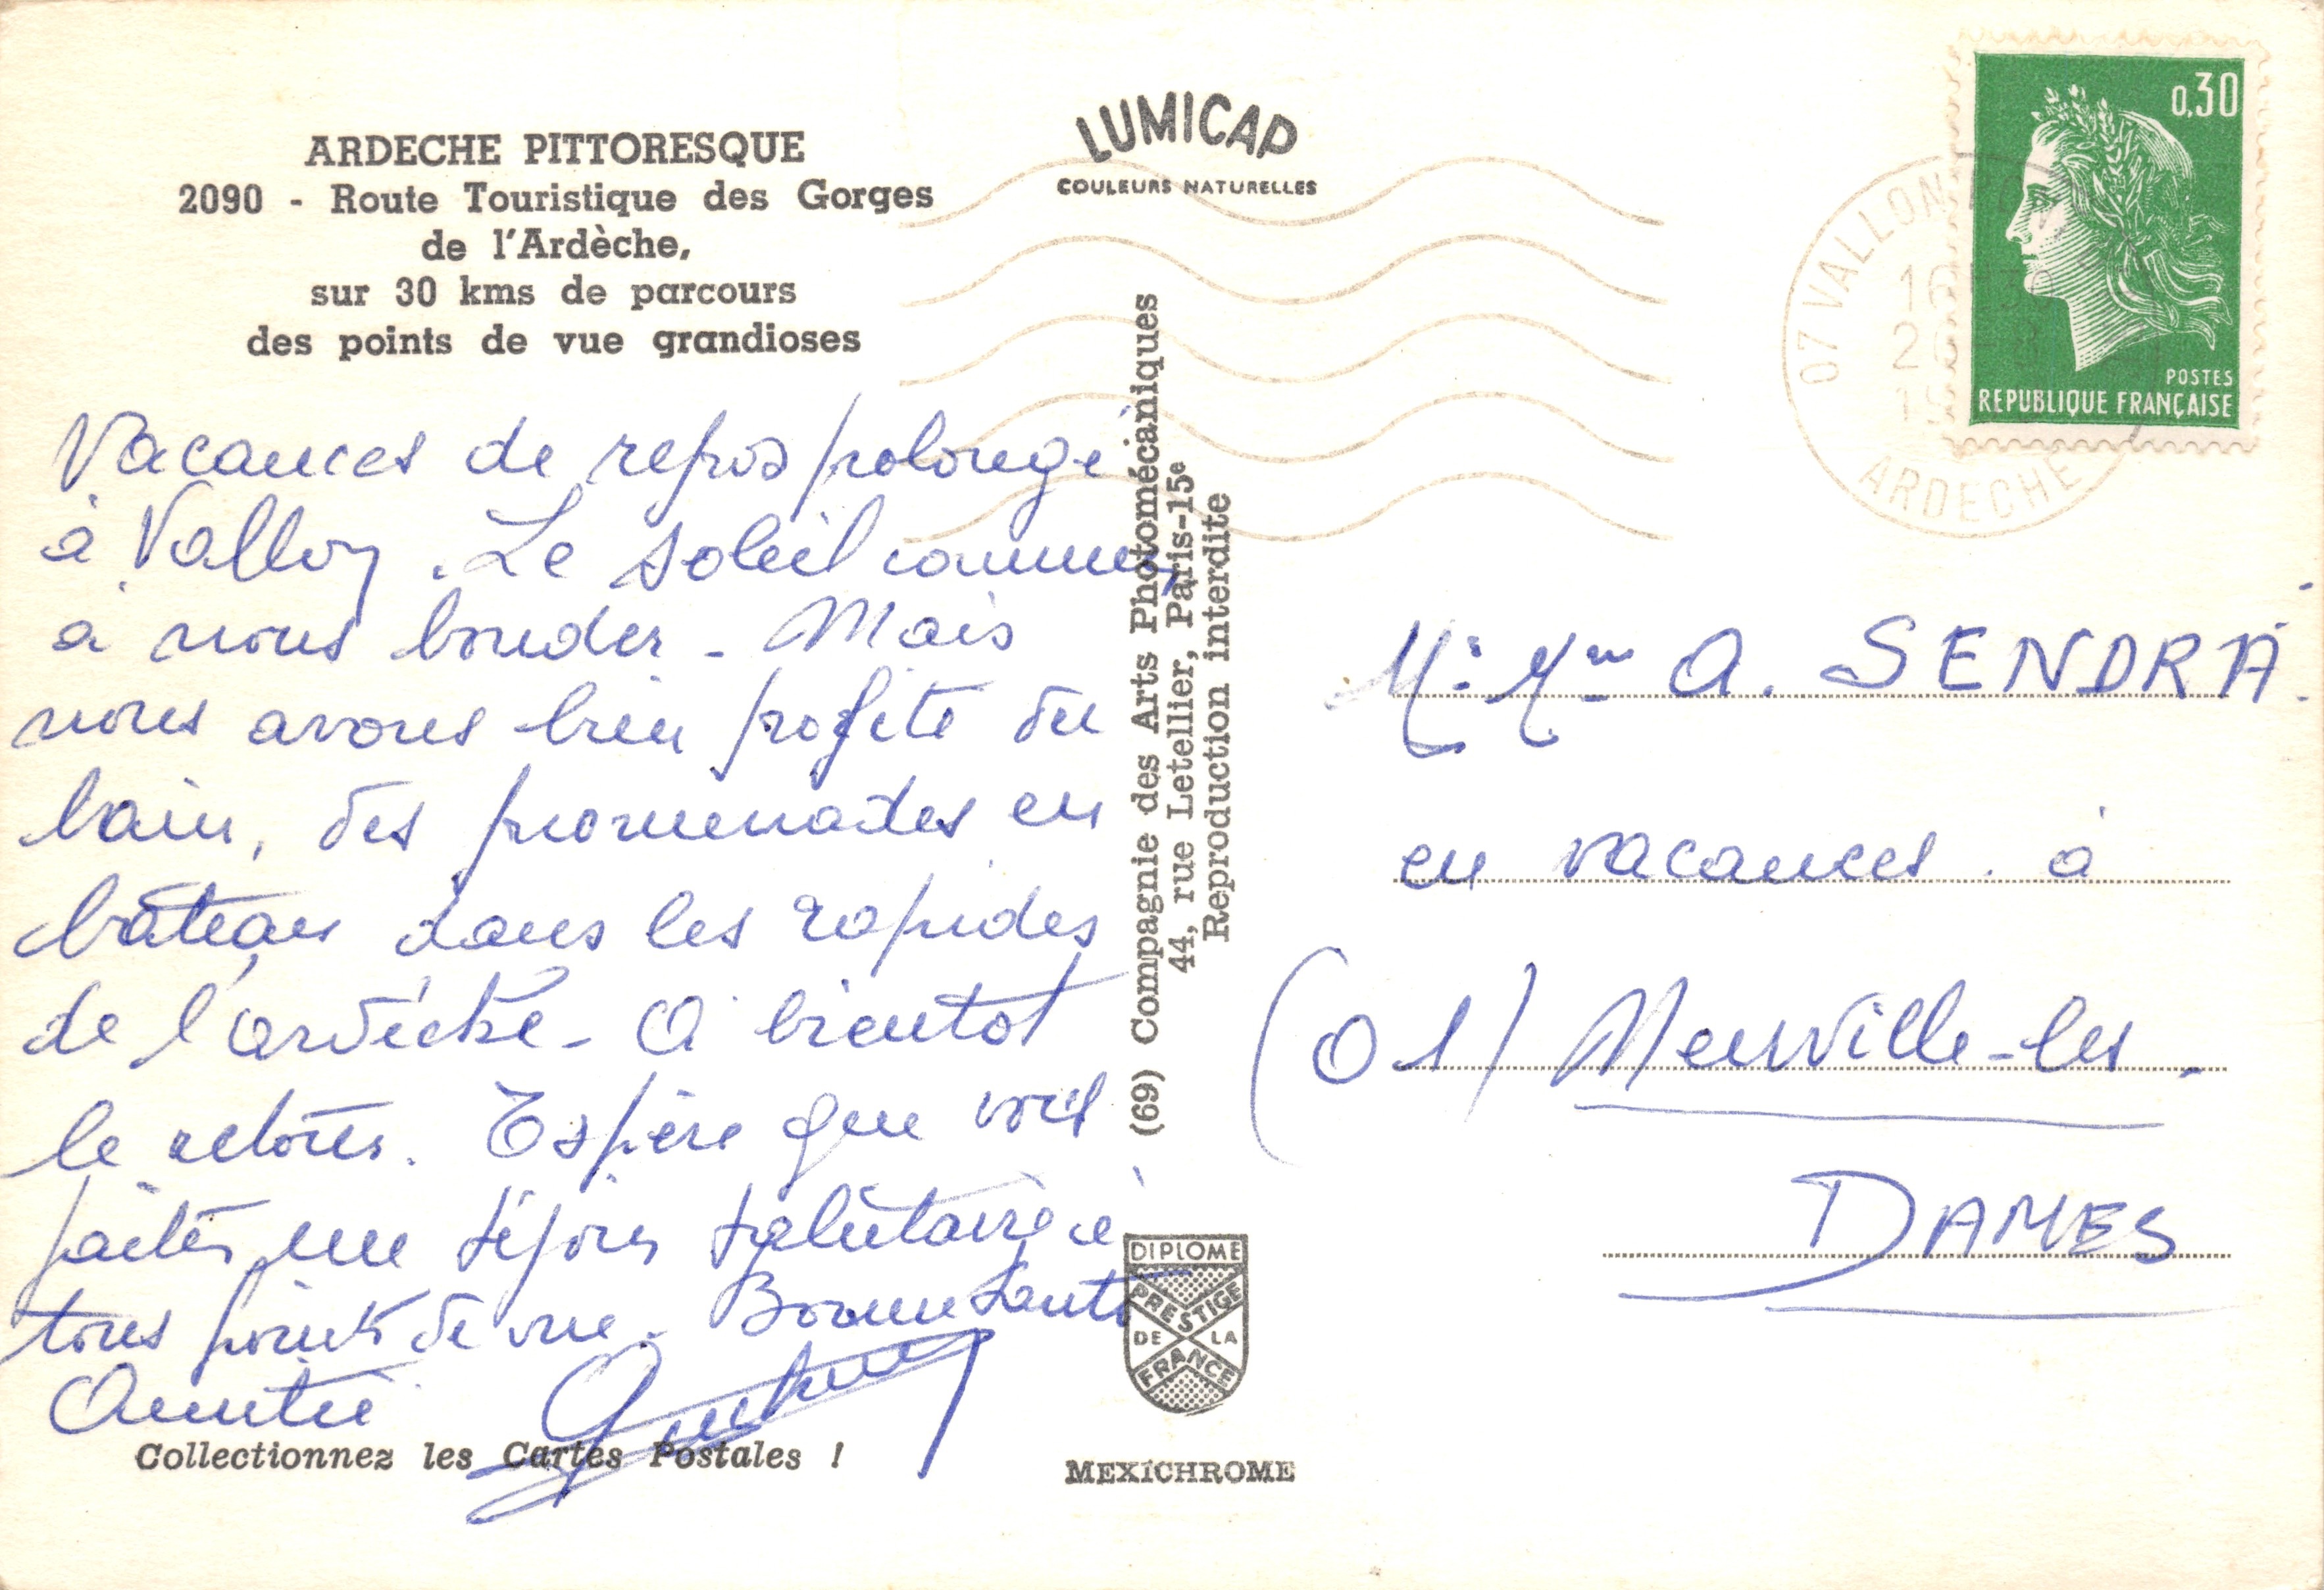 ARDECHE PITTORESQUE
2090 - Route Touristique des Gorges
de l'Ardèche,
sur 30 kms de parcours
des points de vue grandioses
Vacances de repos prolongé
à Vallon. Le soleil commence
à nous bouder - Mais
nous avons bien profité du
bain, des promenades en
bâteau dans les rapides
de l'ardèche - A bientot
le retour. Espère que vous
faites un séjour salutaire à
tous points de vue. Bonne Santé
Amitié
Collectionnez les Cartes Postales !
LUMICAP
COULEURS NATURELLES
(69) Compagnie des Arts Photomécaniques
44, rue Letellier, Paris-15e
Reproduction interdite
DIPLOME
PRESTIGE
DE LA
FRANCE
MEXICHROME
0,30
POSTES
REPUBLIQUE FRANÇAISE
07 VALLON
ARDECHE
M. Mme A. SENDRA.
en vacances à
(01) Neuville-les-
DAMES